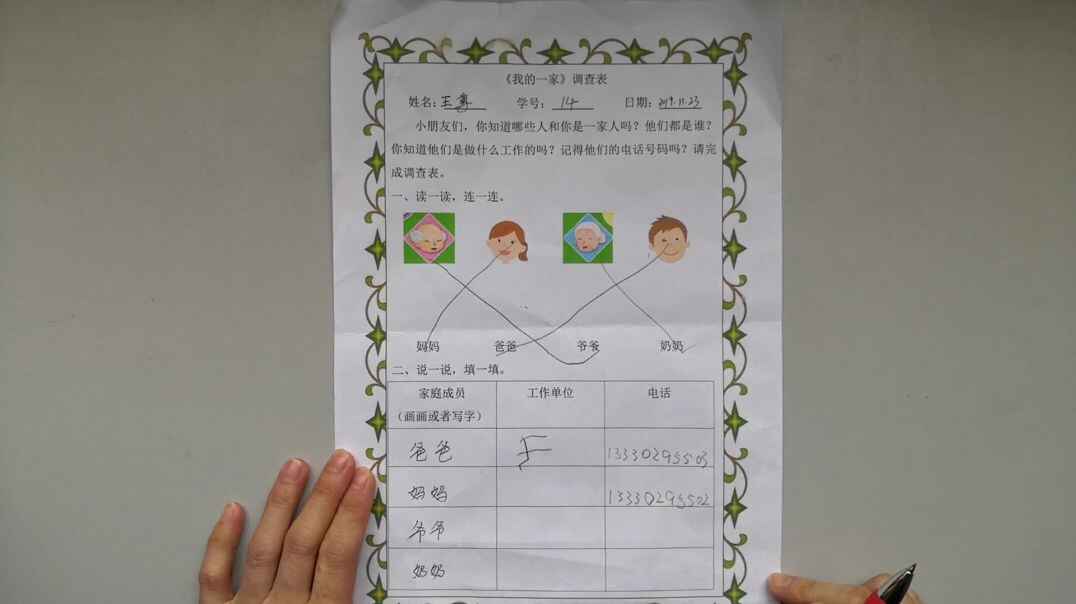 《我的一家》调查表
姓名:王 学号:14 日期:2019.11.23
小朋友们,你知道哪些人和你是一家人吗?他们都是谁?
你知道他们是做什么工作的吗?记得他们的电话号码吗?请完
成调查表。
一、读一读,连一连。
妈妈 爸爸 爷爷 奶奶
二、说一说,填一填。
家庭成员 工作单位 电话
(画画或者写字)
爸爸 13330295503
妈妈 13330295502
爷爷
奶奶